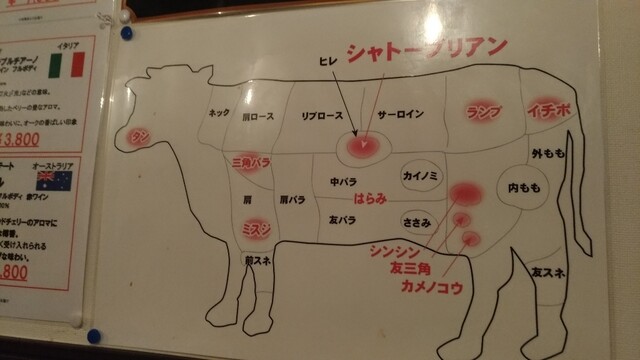 イタリア
ブルチアーノ
イン フルボディ
3,800
オーストラリア
フルボディ 赤ワイン
ドチェリーのアロマに
く受け入れられる
な味わい。
,800
ヒレ
シャトーブリアン
タン
ネック
肩ロース
リブロース
サーロイン
ランプ
イチボ
三角バラ
中バラ
カイノミ
外もも
内もも
肩
肩バラ
はらみ
ミスジ
友バラ
ささみ
前スネ
シンシン
友三角
カメノコウ
友スネ